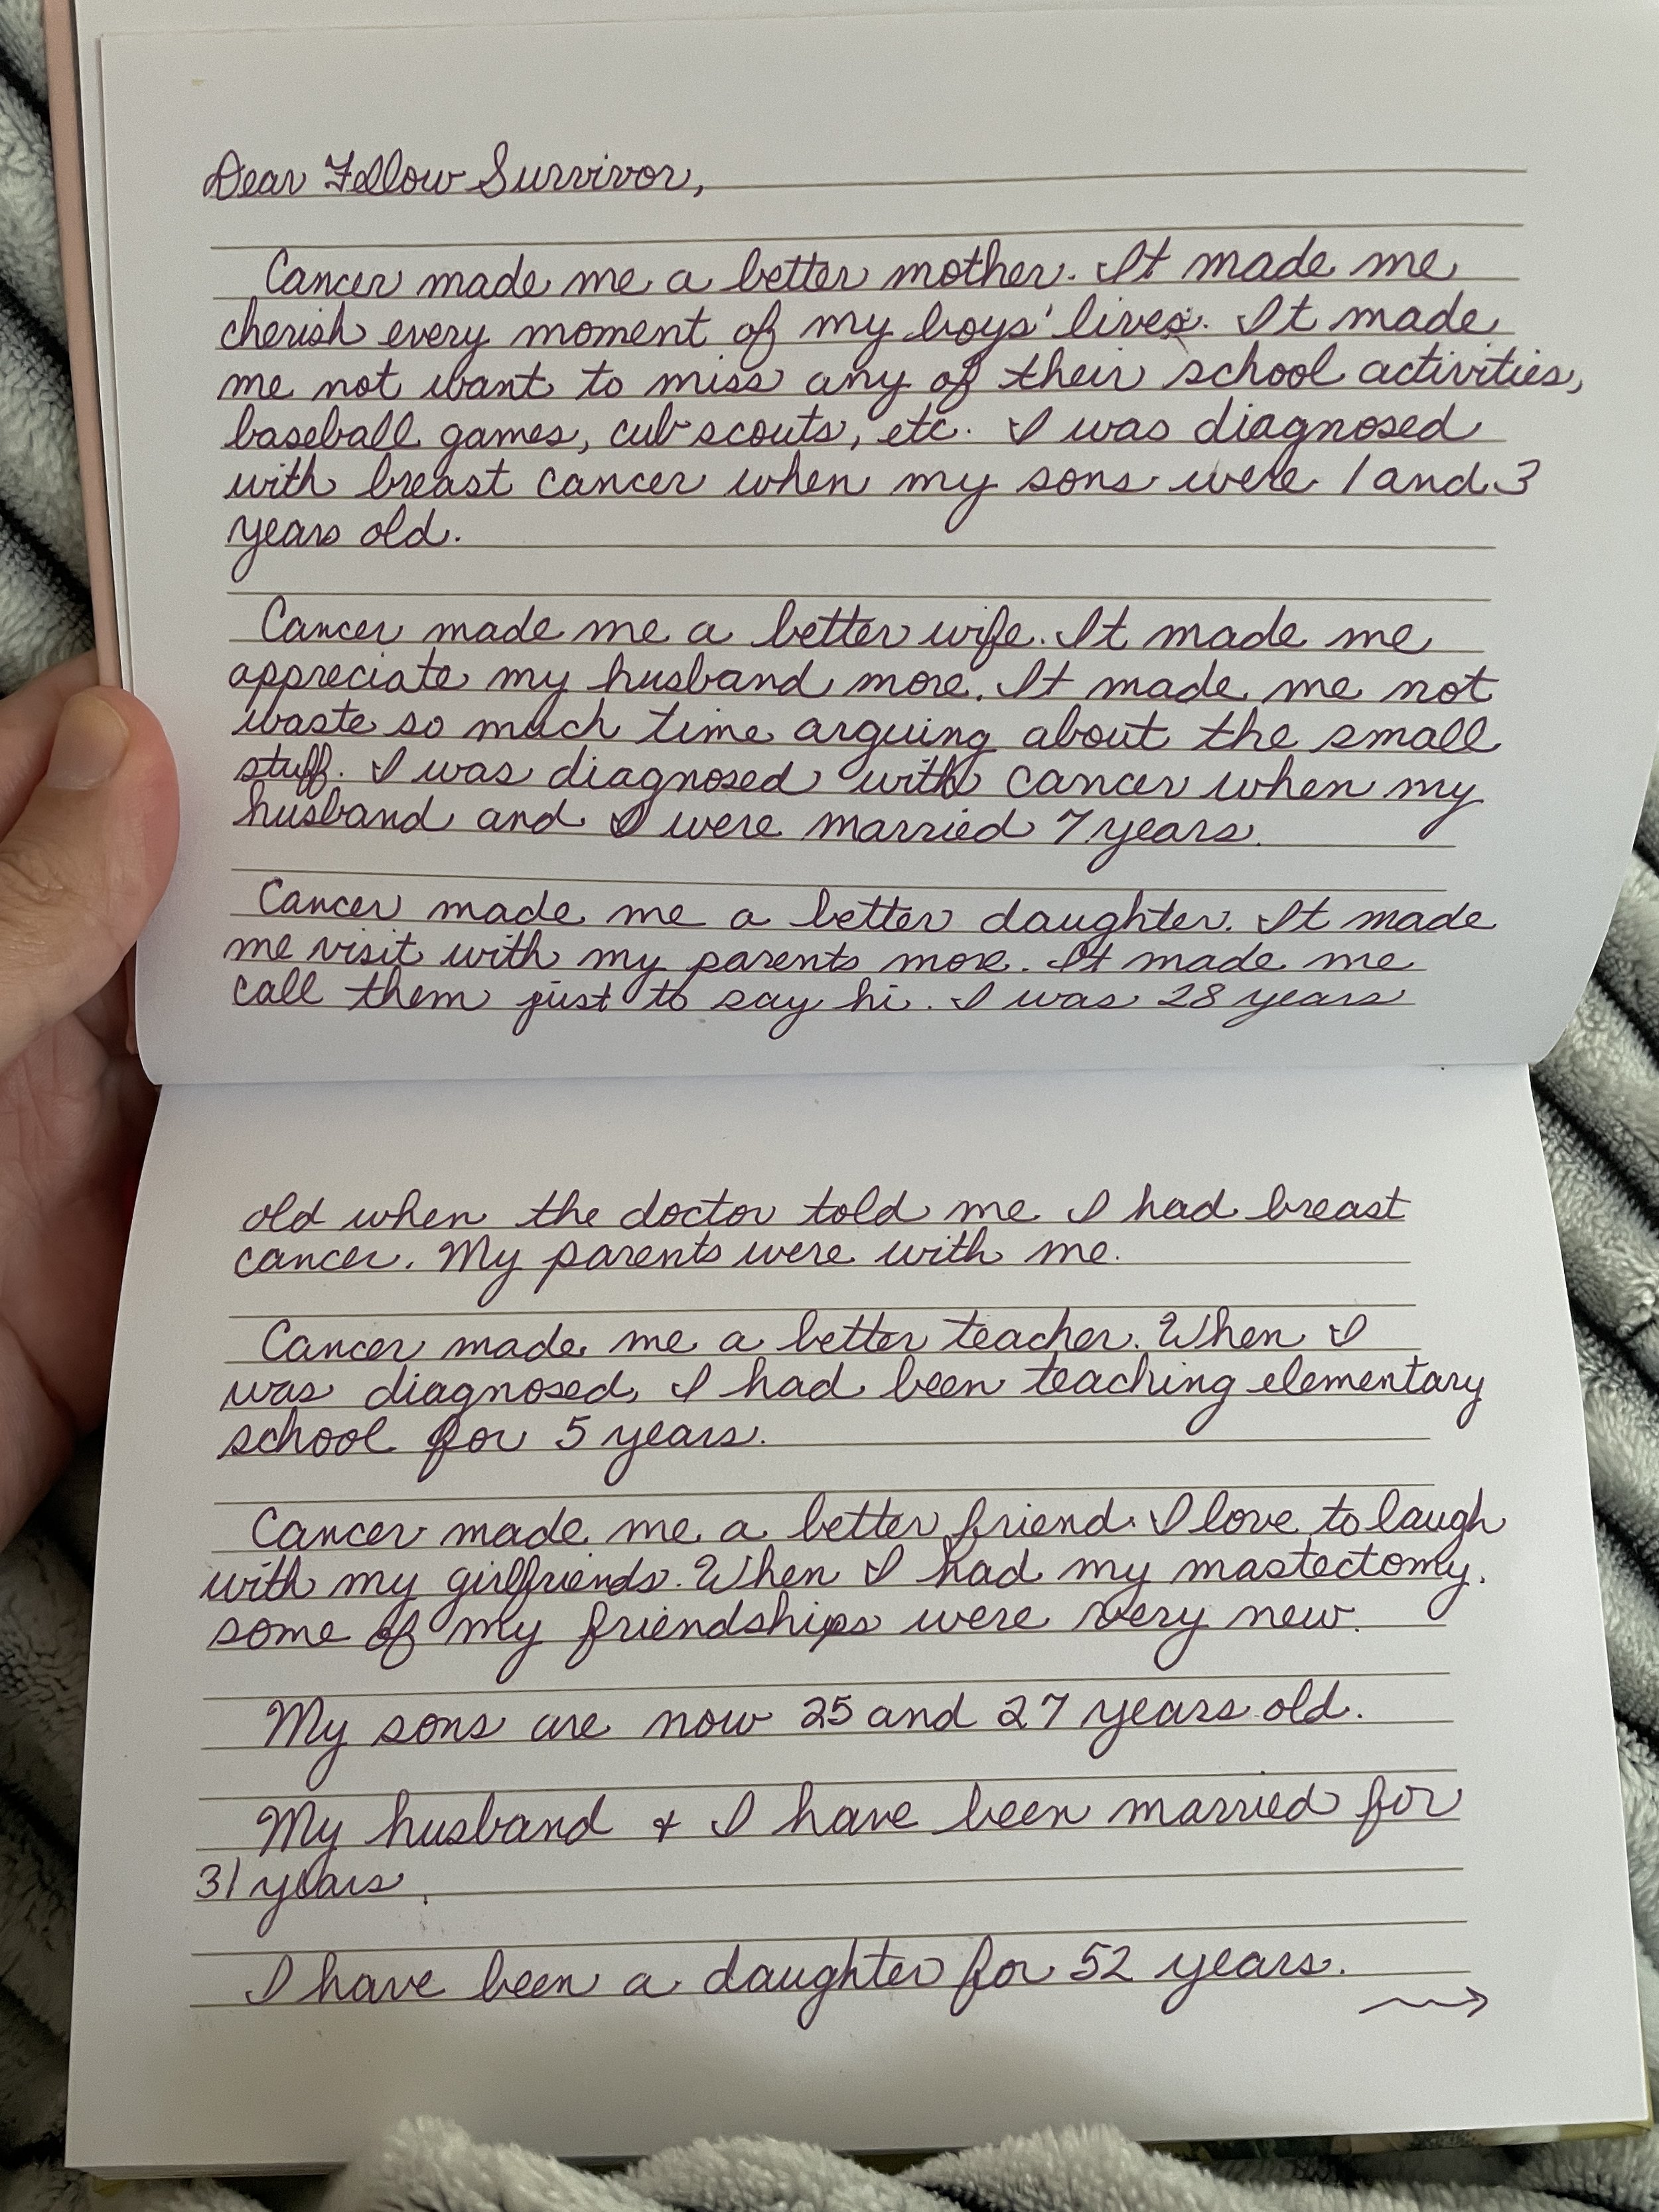 Dear Fellow Survivor,
Cancer made me a better mother. It made me
cherish every moment of my boys' lives. It made
me not want to miss any of their school activities,
baseball games, cub scouts, etc. I was diagnosed
with breast cancer when my sons were 1 and 3
years old.
Cancer made me a better wife. It made me
appreciate my husband more. It made me not
waste so much time arguing about the small
stuff. I was diagnosed with cancer when my
husband and I were married 7 years.
Cancer made me a better daughter. It made
me visit with my parents more. It made me
call them just to say hi. I was 28 years
old when the doctor told me I had breast
cancer. My parents were with me.
Cancer made me a better teacher. When I
was diagnosed, I had been teaching elementary
school for 5 years.
Cancer made me a better friend. I love to laugh
with my girlfriends. When I had my mastectomy,
some of my friendships were very new.
My sons are now 25 and 27 years old.
My husband + I have been married for
31 years.
I have been a daughter for 52 years.